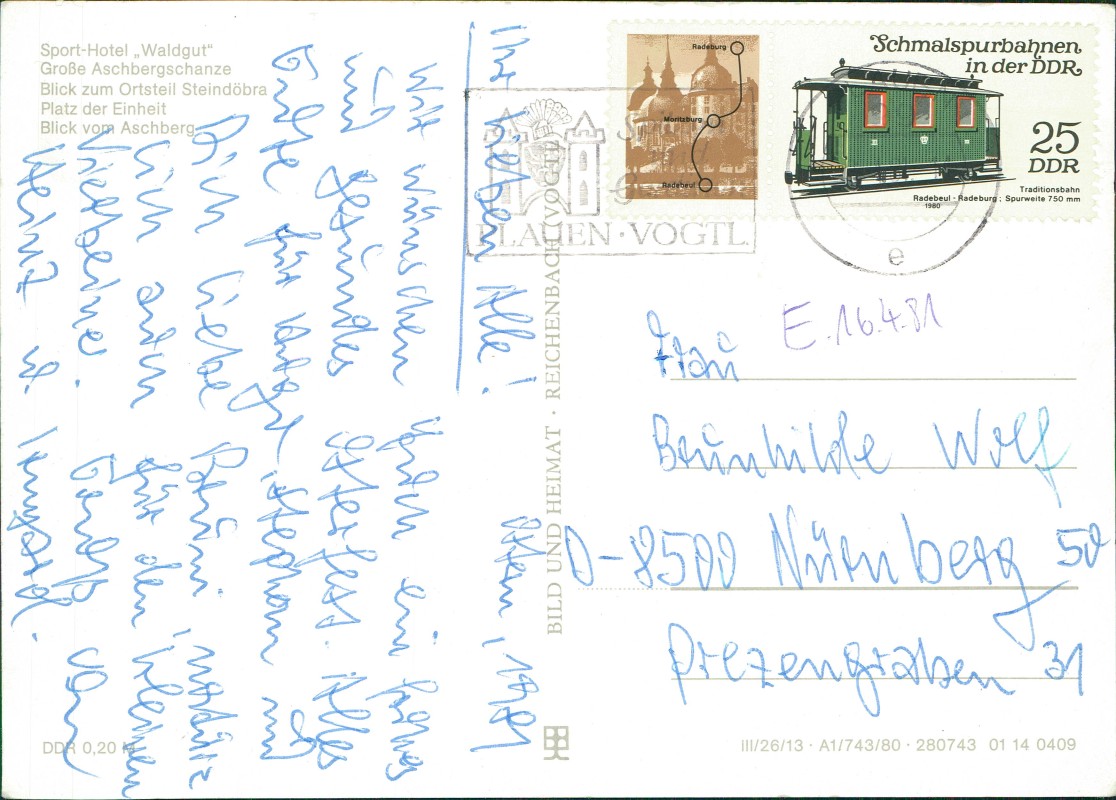 Sport-Hotel „Waldgut"
Große Aschbergschanze
Blick zum Ortsteil Steindöbra
Platz der Einheit
Blick vom Aschberg
Ihr Lieben Alle! Ostern, 1981
Wir wünschen Euch ein frohes
und gesundes Osterfest. Alles
Gute für Stephan und
Dich liebe Brüni, natürlich
auch für den kleinen
Vierbeiner. von
Heinz u. Irmgard.
DDR 0,20 M
BILD UND HEIMAT · REICHENBACH (VOGTL)
PLAUEN · VOGTL.
e
Radeburg
Moritzburg
Radebeul
Schmalspurbahnen
in der DDR
25
DDR
Traditionsbahn
Radebeul - Radeburg; Spurweite 750 mm
1980
E. 16.4.81
Frau
Brunhilde Wolf
D-8500 Nürnberg 50
Pirezengraben 31
III/26/13 · A1/743/80 · 280743 01 14 0409